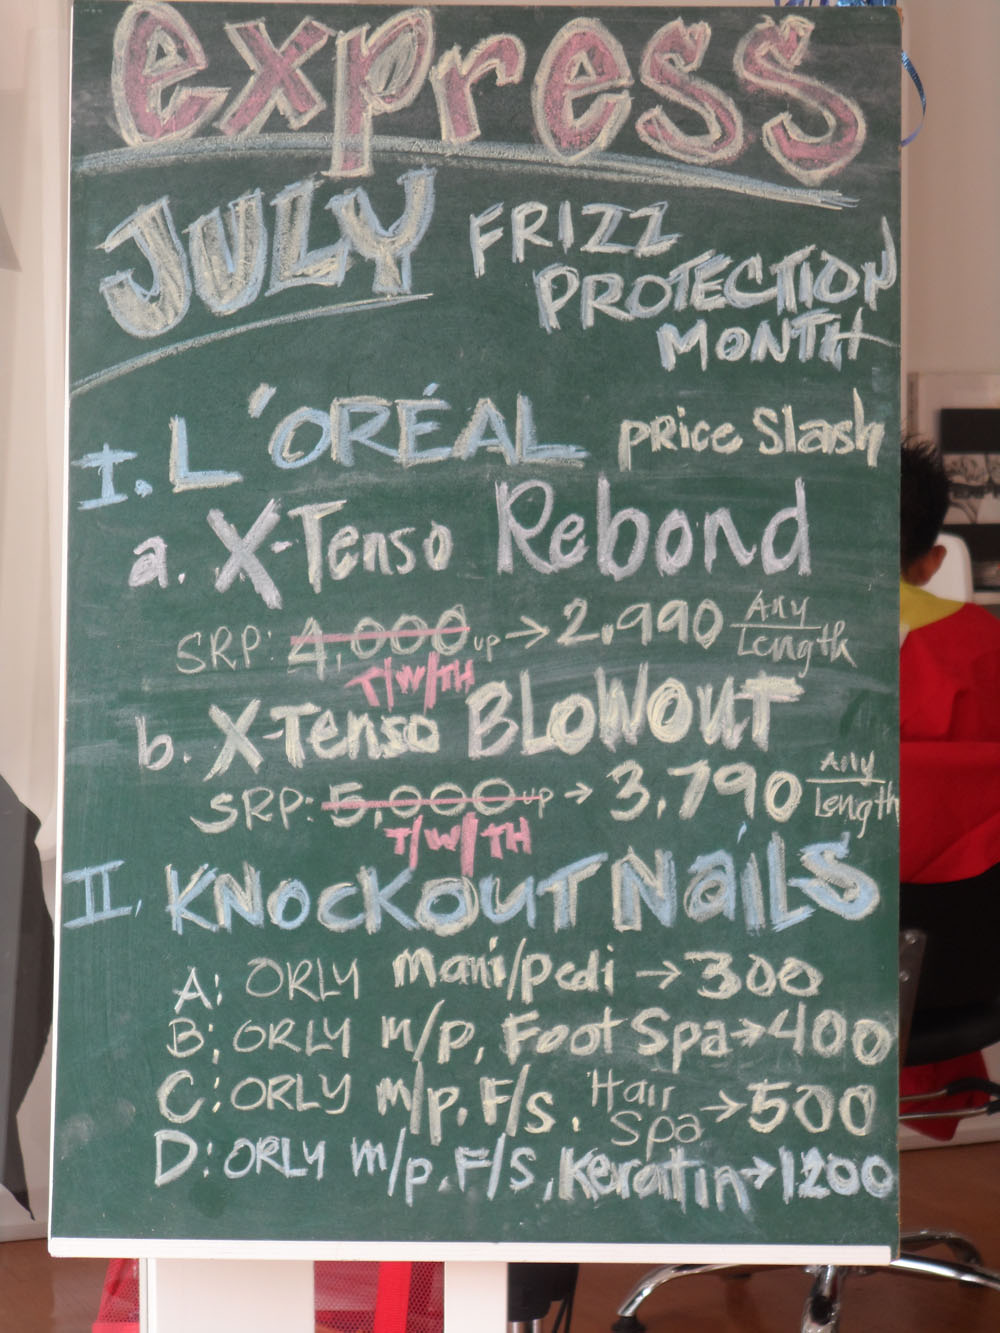 express
JULY FRIZZ
PROTECTION
MONTH
I. L'ORÉAL price Slash
a. X-Tenso Rebond
SRP: 4,000 up → 2,990 Any Length
T/W/TH
b. X-Tenso BLOWOUT
SRP: 5,000 up → 3,790 Any Length
T/W/TH
II. KNOCKOUT NAiLS
A: ORLY mani/pedi → 300
B: ORLY m/p, Foot Spa → 400
C: ORLY m/p, F/s. Hair Spa → 500
D: ORLY m/p, F/S, Keratin → 1200